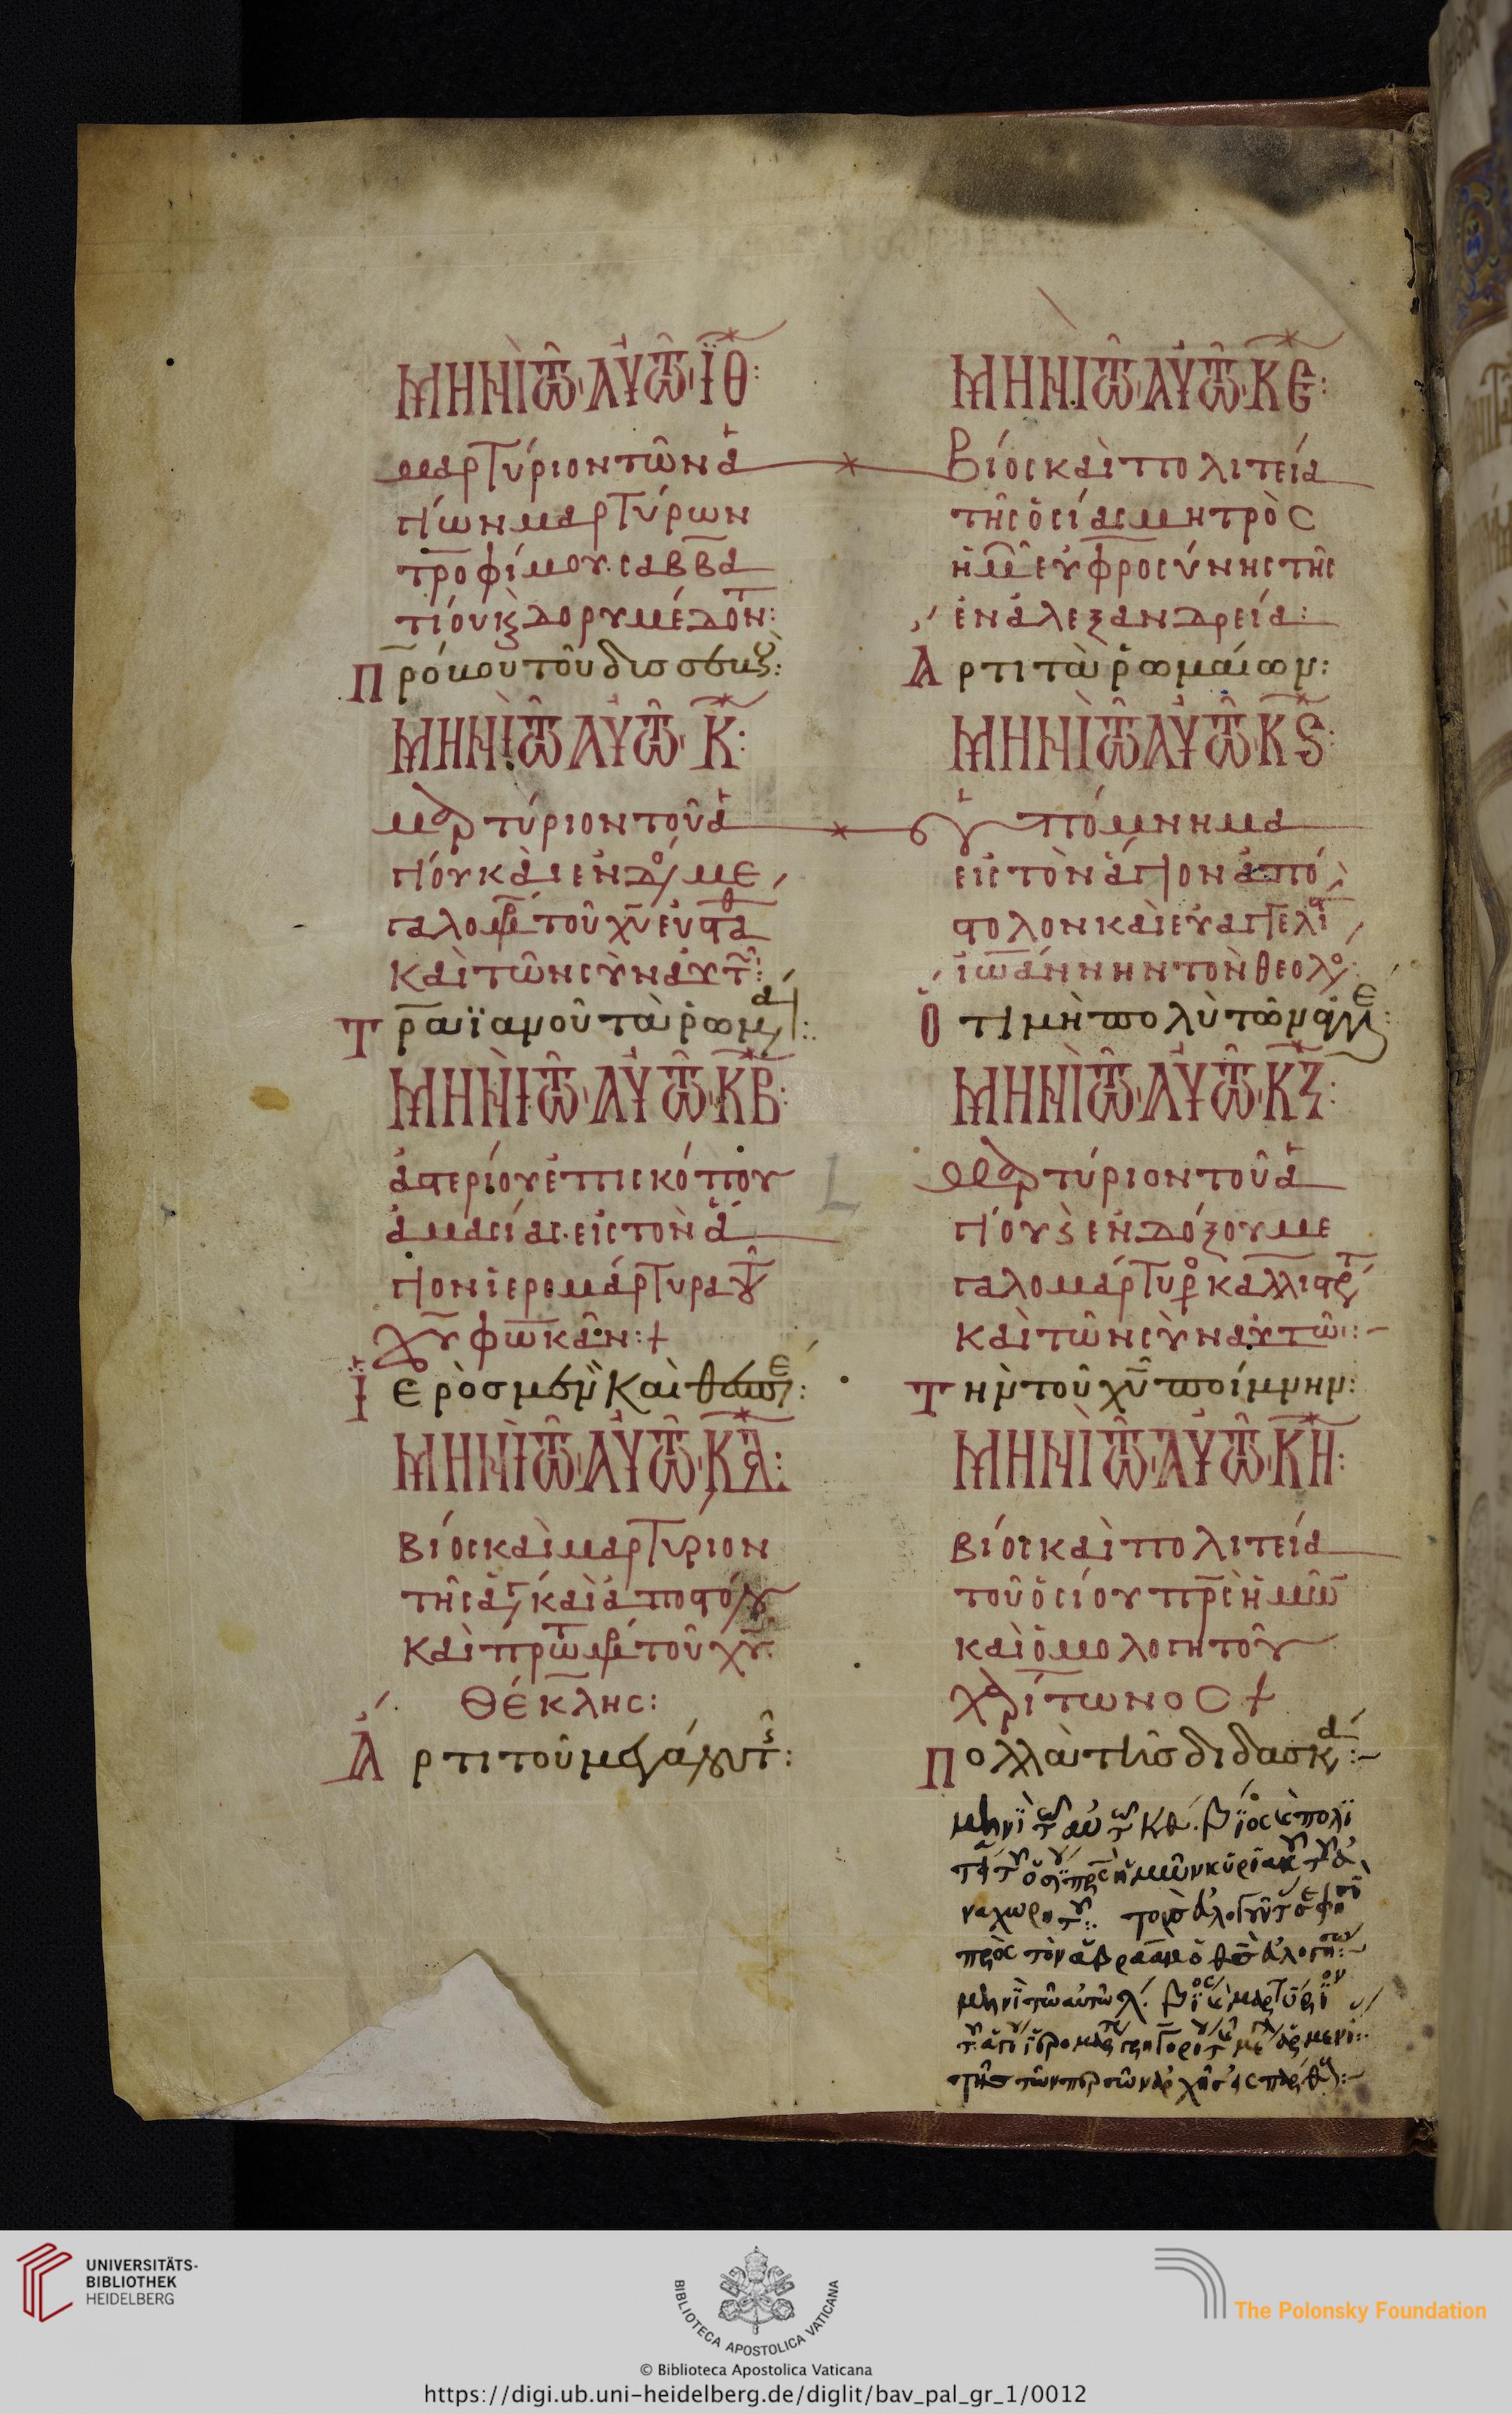 ΜΗΝῚ Τῶ ΑΥΤῶ ΙΘ:
μαρτύριον τῶν ἁ
γίων μαρτύρων
τροφίμου. σαββα
τίου κ̀ δορυμέδον:
Πρόκου τοῦ δισσεβοῦς:
ΜΗΝῚ Τῶ ΑΥΤῶ Κ:
μαρτύριον τοῦ ἁ
γίου καὶ ἐνδόξ με
γαλομάρ τοῦ χυ εὐσταθ
καὶ τῶν σὺν αὐτ:
Τραϊανοῦ τὰ ῥωμα:
ΜΗΝῚ Τῶ ΑΥΤῶ ΚΒ:
ἀστερίου ἐπισκόπου
ἀμασίας. εἰς τὸν ἅ
γιον ἱερομάρτυρα τοῦ
χυ φωκᾶν:+
Ἱερὸς μὲν καὶ θεσπε:
ΜΗΝῚ Τῶ ΑΥΤῶ ΚΔ:
βίος καὶ μαρτύριον
τῆς ἁγ καὶ ἀποστόλου
καὶ πρωτομάρ τοῦ χυ
θέκλης:
Ἄρτι τοῦ μεγάλου τ:
ΜΗΝῚ Τῶ ΑΥΤῶ ΚΕ:
Βίος καὶ πολιτεία
τῆς ὁσίας μητρὸς
ἡμῶ εὐφροσύνης τῆς
ἐν ἀλεξανδρεία:
Ἄρτι τὰ ῥωμαίων:
ΜΗΝῚ Τῶ ΑΥΤῶ Κς:
ὑπόμνημα
εἰς τὸν ἅγιον ἀπό
στολον καὶ εὐαγγελι
ἰωάννην τὸν θεολό:
Ὅτι μὴ πολὺ τῶν ἀγγε:
ΜΗΝῚ Τῶ ΑΥΤῶ ΚΖ:
Μαρτύριον τοῦ ἁ
γίου κ̀ ἐνδόξου με
γαλομάρτυρο καλλιστρ
καὶ τῶν σὺν αὐτῶ:-
Τὴν τοῦ χυ ποίμνην:
ΜΗΝῚ Τῶ ΑΥΤῶ ΚΗ:
βίος καὶ πολιτεία
τοῦ ὁσίου πρς ἡμῶ
καὶ ὁμολογητοῦ
χαρίτωνος+
Πολλὰ τῆς διδασκα:-
μηνὶ τω αὐτω κθ. βίος κ̀ πολι
τ του ὁσι πρς ἡμῶν κυριακου του ἀ
ναχωρητου:
πρὸς τὸν ἀβραὰμ ὁ θς
μηνὶ τῶ αὐτῶ λ. βίος κ̀ μαρτύριον
τῆς τῶν περσῶν ἀρχῆς εἰς παρθ:-
UNIVERSITÄTS-
BIBLIOTHEK
HEIDELBERG
BIBLIOTECA APOSTOLICA VATICANA
The Polonsky Foundation
© Biblioteca Apostolica Vaticana
https://digi.ub.uni-heidelberg.de/diglit/bav_pal_gr_1/0012